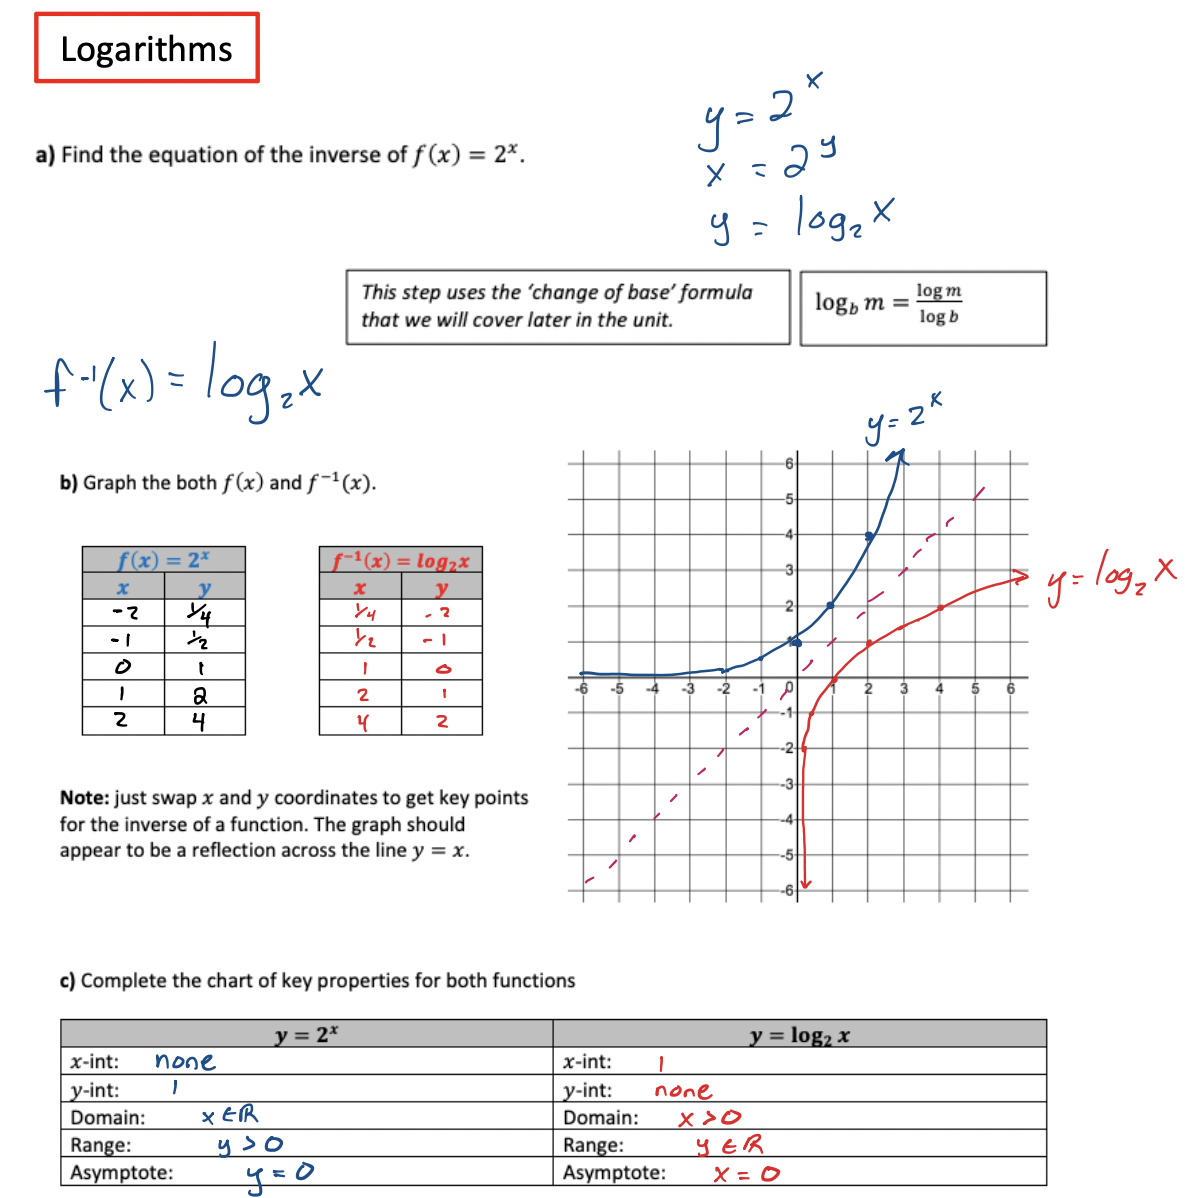 Logarithms
a) Find the equation of the inverse of f(x) = 2ˣ.
y = 2ˣ
x = 2ʸ
y = log₂ x
This step uses the 'change of base' formula
that we will cover later in the unit.
log_b m = log m / log b
f⁻¹(x) = log₂ x
b) Graph the both f(x) and f⁻¹(x).
f(x) = 2ˣ
x y
-2 1/4
-1 1/2
0 1
1 2
2 4
f⁻¹(x) = log₂x
x y
1/4 -2
1/2 -1
1 0
2 1
4 2
y = 2ˣ
6
5
4
3
2
-6 -5 -4 -3 -2 -1 0 1 2 3 4 5 6
-1
-2
-3
-4
-5
-6
y = log₂ x
Note: just swap x and y coordinates to get key points
for the inverse of a function. The graph should
appear to be a reflection across the line y = x.
c) Complete the chart of key properties for both functions
y = 2ˣ y = log₂ x
x-int: none x-int: 1
y-int: 1 y-int: none
Domain: x ∈ ℝ Domain: x > 0
Range: y > 0 Range: y ∈ ℝ
Asymptote: y = 0 Asymptote: x = 0